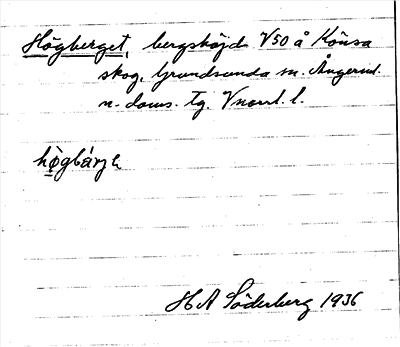 Högberget, bergshöjd VSO å Könsa
skog, Grundsunda sn. Ångerml.
n. doms. tg. Vnorrl. l.
hø̀gbárje
H A Söderberg 1936